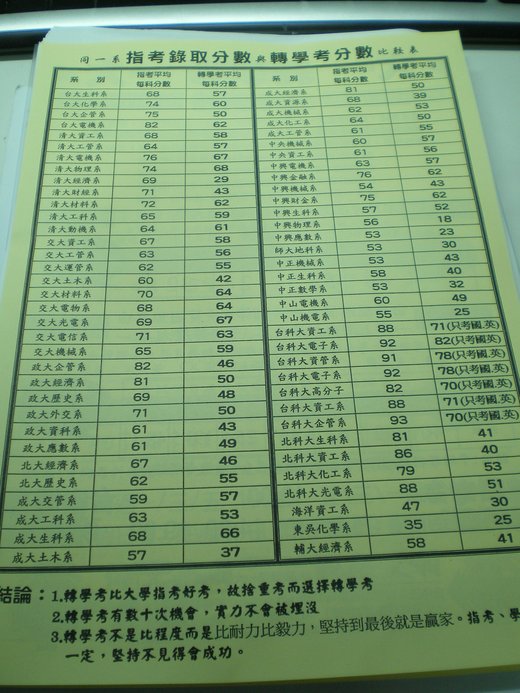 同一系指考錄取分數與轉學考分數比較表
系 別 指考平均每科分數 轉學考平均每科分數
台大生科系 68 57
台大化學系 74 60
台大企管系 75 50
台大電機系 82 62
清大資工系 68 58
清大工管系 64 57
清大電機系 76 67
清大物理系 74 68
清大經濟系 69 29
清大財經系 71 43
清大材料系 72 62
清大工科系 65 59
清大動機系 64 61
交大資工系 67 58
交大工管系 63 56
交大運管系 62 55
交大土木系 60 42
交大材料系 70 64
交大電物系 68 64
交大光電系 69 67
交大電信系 71 63
交大機械系 65 59
政大企管系 82 46
政大經濟系 81 50
政大歷史系 69 48
政大外交系 71 50
政大資科系 61 43
政大應數系 61 49
北大經濟系 67 46
北大歷史系 62 55
成大交管系 59 57
成大工科系 63 53
成大生科系 68 66
成大土木系 57 37
系 別 指考平均每科分數 轉學考平均每科分數
成大經濟系 81 50
成大資源系 68 39
成大機械系 62 53
成大化工系 64 50
成大工管系 61 55
中央機械系 60 57
中央資工系 61 56
中興電機系 63 57
中興金融系 76 62
中興機械系 54 43
中興財金系 75 62
中興生科系 57 52
中興物理系 56 18
中興應數系 53 23
師大地科系 53 30
中正機械系 53 43
中正生科系 58 40
中正數學系 53 32
中山電機系 60 49
中山機電系 55 25
台科大資工系 88 71(只考國,英)
台科大電子系 92 82(只考國,英)
台科大資管系 91 78(只考國,英)
台科大電子系 92 78(只考國,英)
台科大高分子 82 70(只考國,英)
台科大資工系 88 71(只考國,英)
台科大企管系 93 70(只考國,英)
北科大生科系 81 41
北科大資工系 86 40
北科大化工系 79 53
北科大光電系 88 51
海洋資工系 47 30
東吳化學系 35 25
輔大經濟系 58 41
結論：1.轉學考比大學指考好考，故捨重考而選擇轉學考
2.轉學考有數十次機會，實力不會被埋沒
3.轉學考不是比程度而是比耐力比毅力，堅持到最後就是贏家。指考、學
一定，堅持不見得會成功。